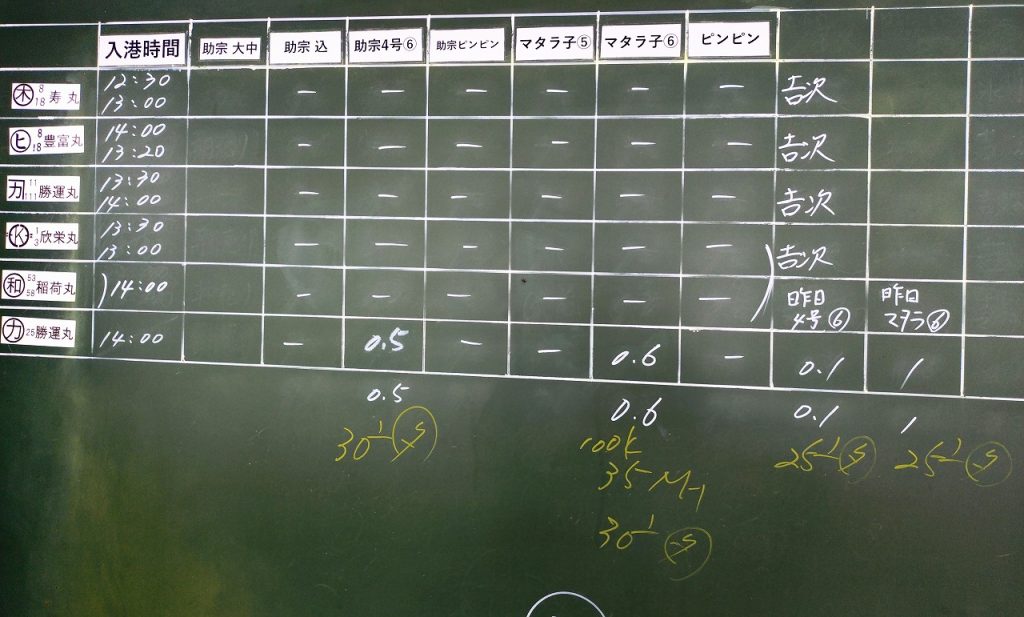 入港時間 助宗 大中 助宗 込 助宗4号⑥ 助宗ピンピン マタラ子⑤ マタラ子⑥ ピンピン
㊍ 8 18 寿丸 12:30 13:00 — — — — — — 吉次
㋪ 8 18 豊富丸 14:00 13:20 — — — — — — 吉次
カ 11 111 勝運丸 13:30 14:00 — — — — — — 吉次
Ⓚ 1 3 欣栄丸 13:30 13:00 — — — — — — 吉次
和 53 58 稲荷丸 14:00 — — — — — — 昨日 4号⑥ 昨日 マタラ⑥
㋕ 25 勝運丸 14:00 — 0.5 — — 0.6 — 0.1 1
0.5 0.6 0.1 1
30
100K
35
25 25
30